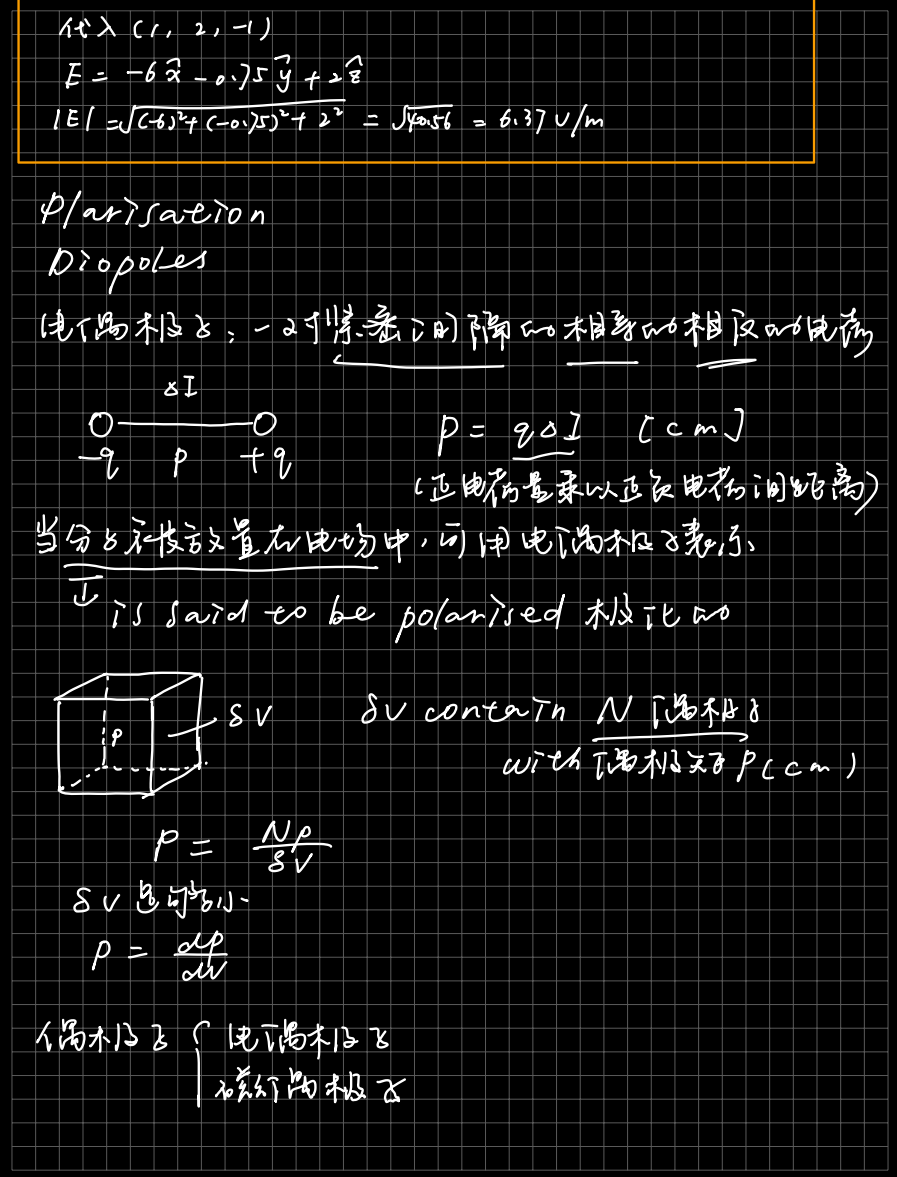 代入 (1, 2, -1)
E = -6x̂ - 0.75ŷ + 2ẑ
|E| = √(-6)²+(-0.75)²+2² = √40.56 = 6.37 V/m
Plarisation
Diopoles
电偶极子：一对紧密间隔的相等的相反的电荷
ΔI
-q p +q
p = qΔI [cm]
(正电荷量乘以正负电荷间距离)
当分子被放置在电场中，可用电偶极子表示、
is said to be polarised 极化的
p
δV
δV contain N 偶极子
with 偶极矩 P (cm)
P = Np/δV
δV 足够小
P = dp/dv
偶极子 { 电偶极子
磁偶极子